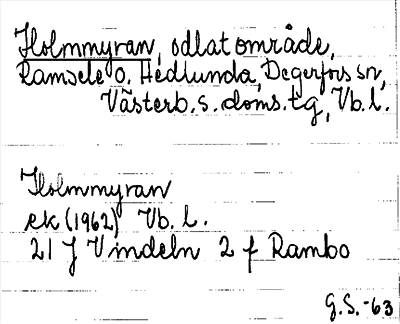 Holmmyran, odlat område,
Ramsele o. Hedlunda, Degerfors sn,
Västerb. s. doms. tg, Vb. l.
Holmmyran
ek (1962) Vb. l.
21 J Vindeln 2 f Rambo
G.S. -63